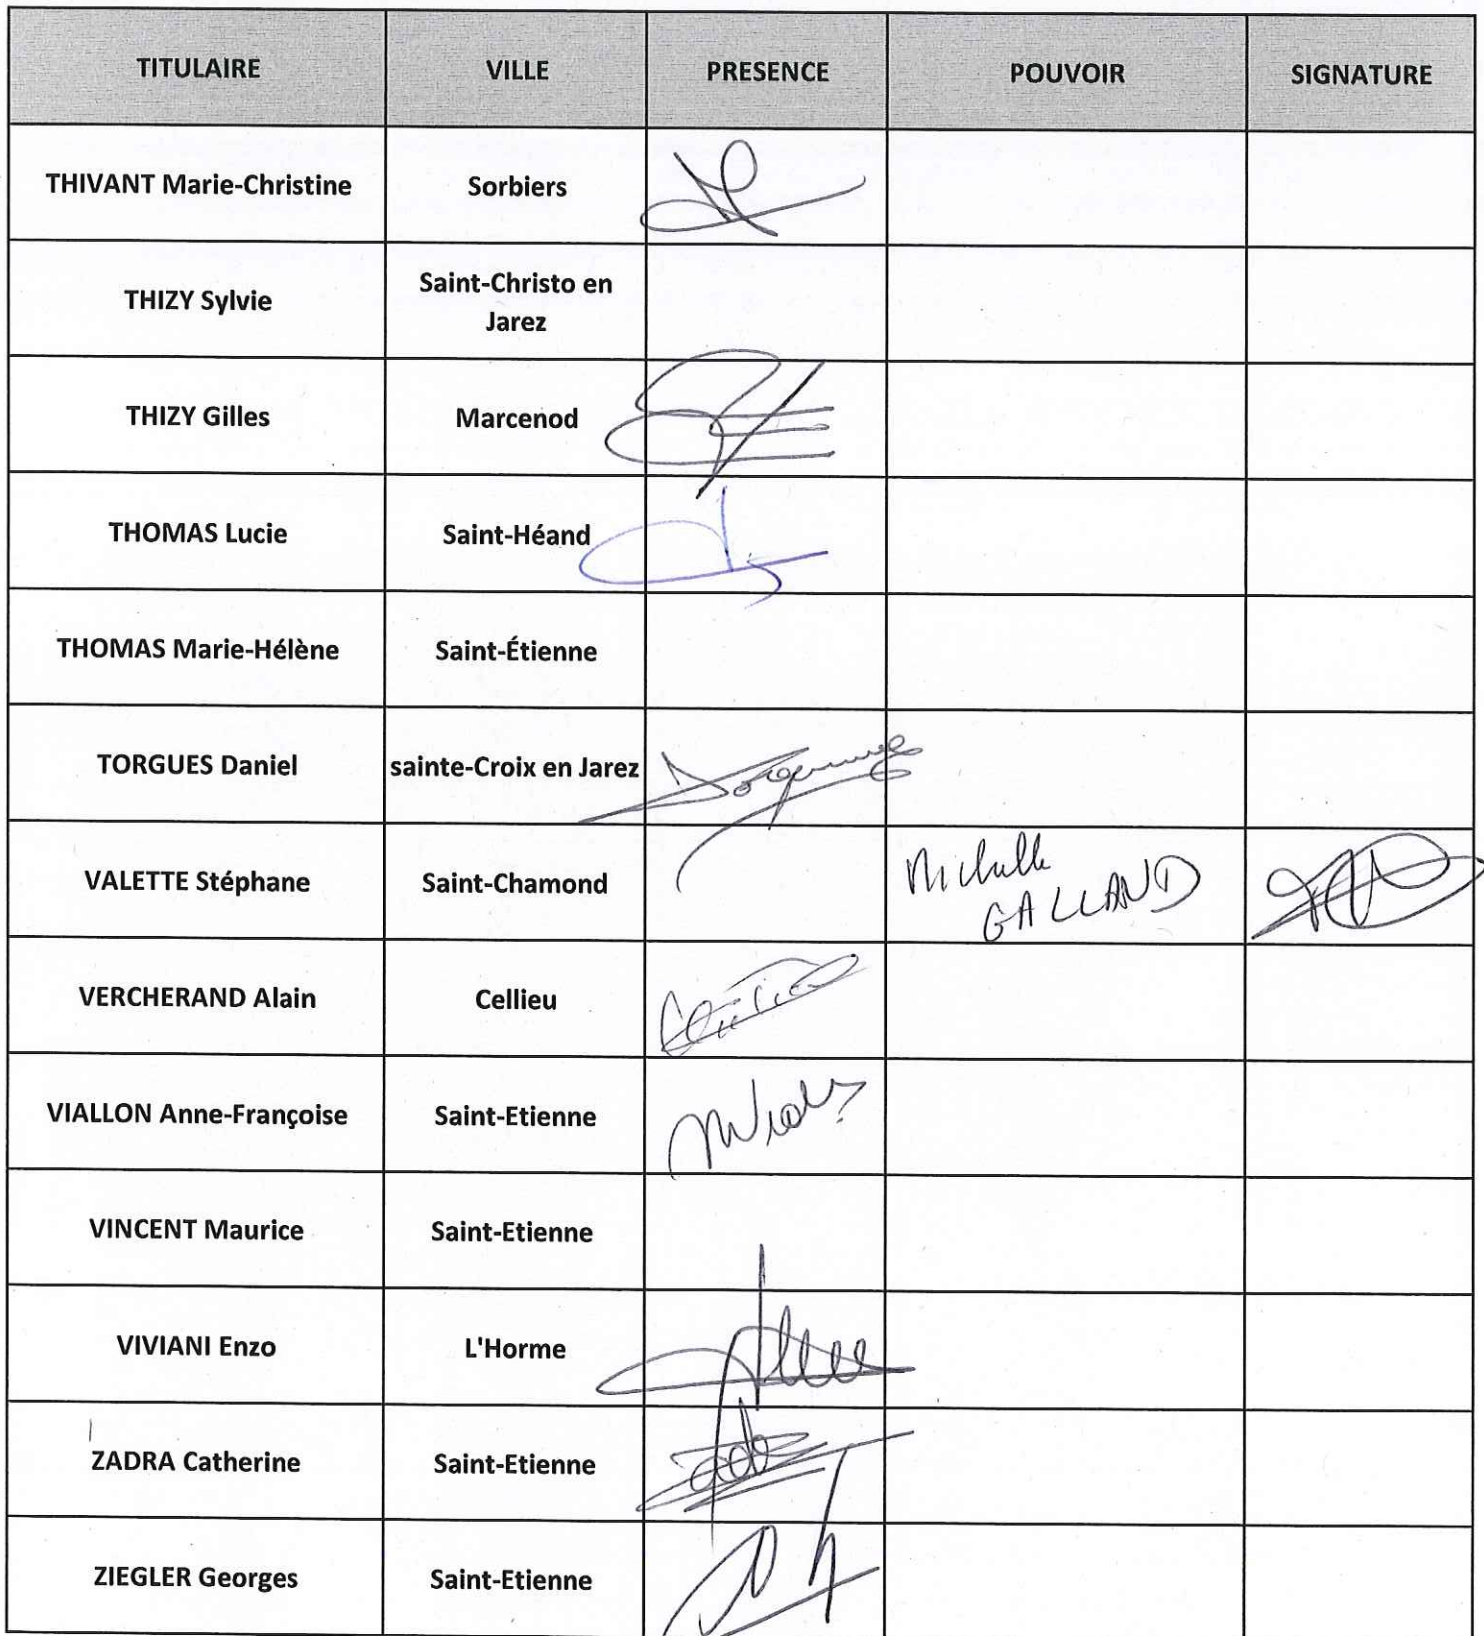 TITULAIRE VILLE PRESENCE POUVOIR SIGNATURE
THIVANT Marie-Christine Sorbiers
THIZY Sylvie Saint-Christo en
Jarez
THIZY Gilles Marcenod
THOMAS Lucie Saint-Héand
THOMAS Marie-Hélène Saint-Étienne
TORGUES Daniel sainte-Croix en Jarez
VALETTE Stéphane Saint-Chamond Michelle
GALLAND
VERCHERAND Alain Cellieu
VIALLON Anne-Françoise Saint-Etienne
VINCENT Maurice Saint-Etienne
VIVIANI Enzo L'Horme
ZADRA Catherine Saint-Etienne
ZIEGLER Georges Saint-Etienne